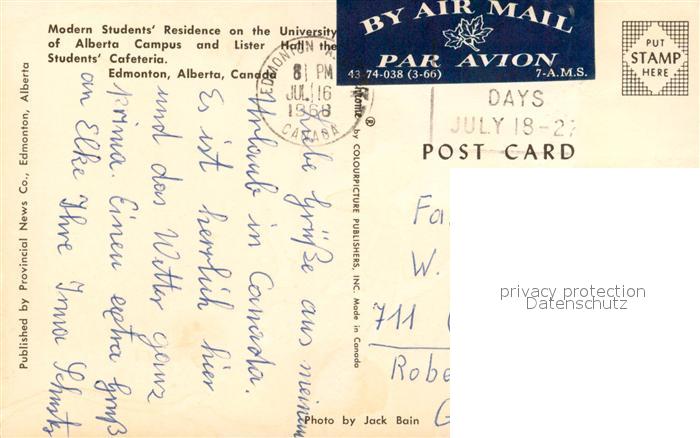 Modern Students' Residence on the University
of Alberta Campus and Lister Hall the
Students' Cafeteria.
Edmonton, Alberta, Canada
BY AIR MAIL
PAR AVION
43-74-038 (3-66) 7-A.M.S.
PUT
STAMP
HERE
EDMONTON
8 PM
JUL 16
1968
CANADA
DAYS
JULY 18-27
POST CARD
Liebe Grüße aus meinem
Urlaub in Canada.
Es ist herrlich hier
und das Wetter ganz
prima. Einen extra Gruß
an Elke Ihre Irma Schutz
Published by Provincial News Co., Edmonton, Alberta
by COLOURPICTURE PUBLISHERS, INC. Made in Canada
Fa.
W.
711
Robe
Photo by Jack Bain
privacy protection
Datenschutz